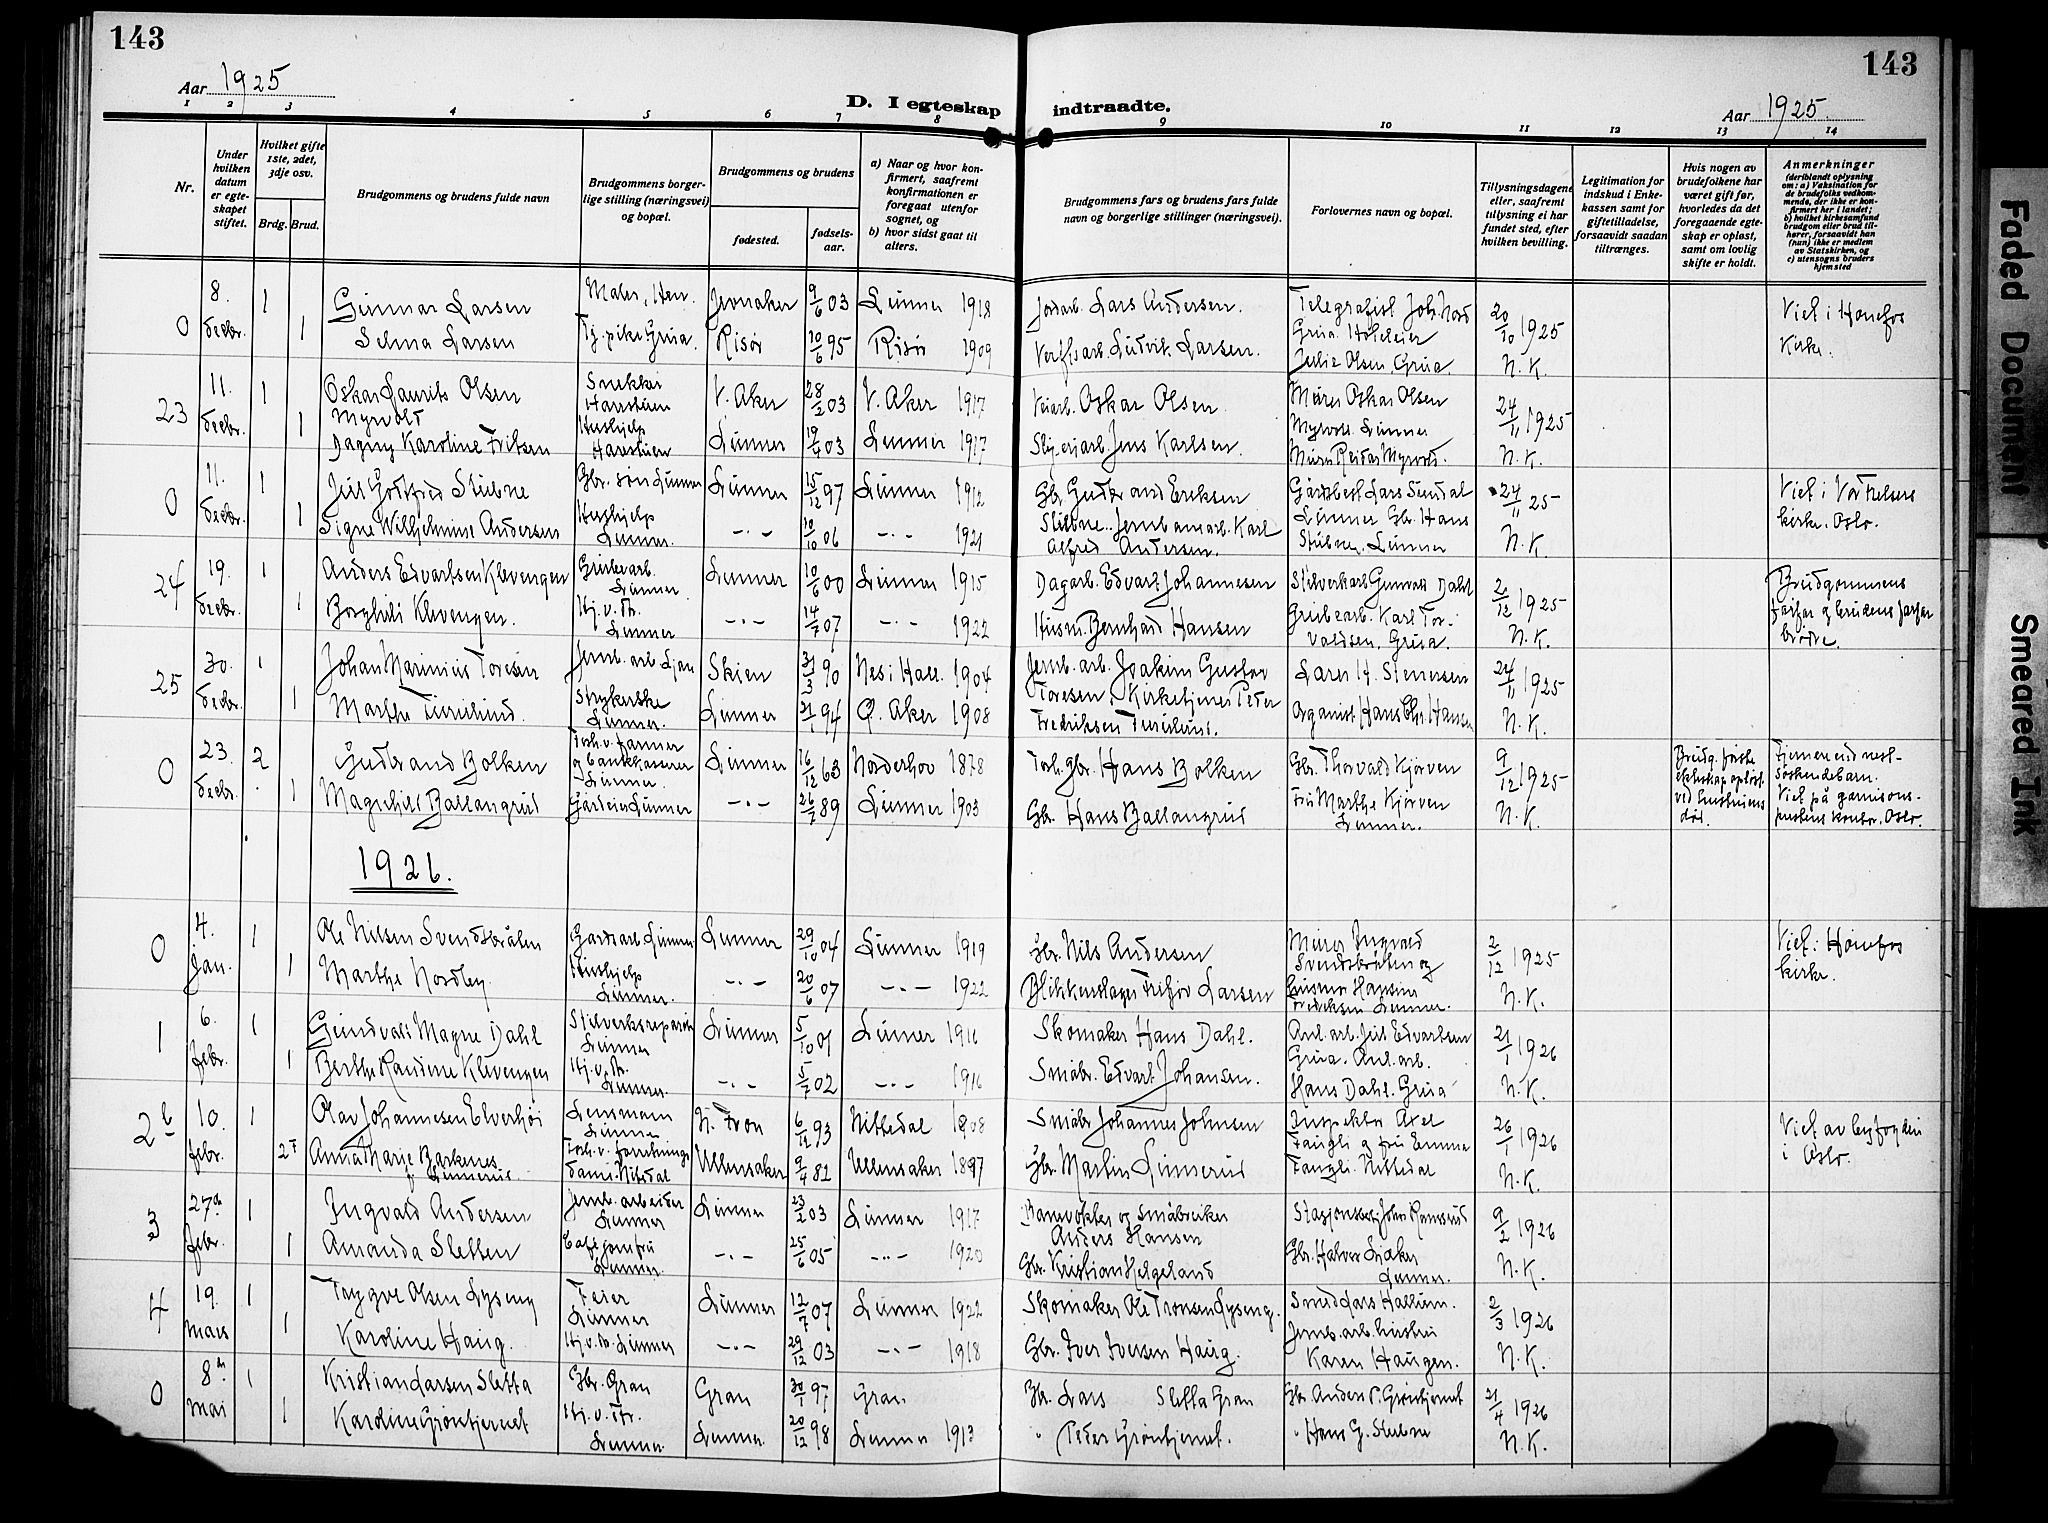 143
Aar 1925
D. I egteskap indtraadte.
143
Aar 1925.
1 2 3 4 5 6 7 8 9 10 11 12 13 14
Nr.
Under hvilken datum er egteskapet stiftet.
Hvilket gifte 1ste, 2det, 3dje osv.
Brdg. Brud.
Brudgommens og brudens fulde navn
Brudgommens borgerlige stilling (næringsvei) og bopæl.
Brudgommens og brudens
fødested. fødselsaar.
a) Naar og hvor konfirmert, saafremt konfirmationen er foregaat utenfor sognet, og
b) hvor sidst gaat til alters.
Brudgommens fars og brudens fars fulde navn og borgerlige stillinger (næringsvei).
Forlovernes navn og bopæl.
Tillysningsdagene eller, saafremt tillysning ei har fundet sted, efter hvilken bevilling.
Legitimation for indskud i Enkekassen samt for giftetilladelse, forsaavidt saadan tiltrænges.
Hvis nogen av brudefolkene har været gift før, hvorledes da det foregaaende egteskap er opløst, samt om lovlig skifte er holdt.
Anmerkninger (deriblandt oplysning om: a) Vaksination for de brudefolks vedkommende, der ikke er konfirmert her i landet; b) hvilket kirkesamfund brudgom eller brud tilhører, forsaavidt han (hun) ikke er medlem av Statskirken, og c) utensogns bruders hjemsted
0 8. decbr. 1 Gunnar Larsen Jevnaker 9/6 03 Lunner 1918 Lars Andersen. 20/10 1925 Viet i Hønefos
1 Selma Larsen Tj. pike Grua. Risør 10/6 95 Risør 1909 Ludvik Larsen. Julie Olsen, Grua. N.K. Kirke.
23 11. decbr. 1 Oskar Laurits Olsen Myrvold Snekker Harestuen V. Aker 28/2 03 V. Aker 1917 Oskar Olsen. Murer Oskar Olsen Myrvold. Lunner 24/11 1925
1 Dagny Karoline Fritsen Hushjelp Harestuen Lunner 19/4 03 Lunner 1917 Jens Karlsen. Murer Reidar Myrvold. N.K.
0 11. decbr. 1 Juul Gottfred Stubne Gbr. søn Lunner Lunner 15/12 97 Lunner 1912 Gb. Gudbrand Eriksen Stubne. Lars Sundal Lunner Gbr. Hans Stubne, Lunner 24/11 25 Viet i Vor Frelsers kirke, Oslo.
1 Signe Wilhelmine Andersen Hushjelp Lunner. -.- 10/10 06 -.- 1921 Karl Alfred Andersen. N.K.
24 19. decbr. 1 Anders Edvartsen Klevengen Grubearb. Lunner Lunner 10/6 00 Lunner 1915 Dagarb. Edvart Johannesen Gunvald Dahl 2/12 1925 Brudgommens farfar og brudens farfar brødre.
1 Borghild Klevengen. Hj. v. Fr. Lunner -.- 14/7 07 -.- 1922 Husm. Bernhard Hansen Grubearb. Karl Torvaldsen, Grua. N.K.
25 30. decbr. 1 Johan Marinius Toresen Jernb. arb. Skien 31/3 90 Nes i Hall. 1904 Jernb. arb. Joakim Gustav Toresen. 24/11 1925
1 Marthe Strykerske Lunner. Lunner 94 Ø. Aker 1908 Kirketjener Peder Fredriksen Organist Hans Chr. Hansen N.K.
0 23. decbr. 2 Gudbrand Bolken Forh. v. farmer og bankkasserer Lunner Lunner 16/12 63 Norderhov 1878 Forh. gbr. Hans Bolken Gbr. Thorvald Kjørven 9/12 1925 Brudg. første ekteskap opløst ved hustruens død. Fjernere end nestsøskendebarn.
1 Magnhild Ballangrud Lunner -.- 26/7 89 Lunner 1903 Gbr. Hans Ballangrud Fru Marthe Kjørven Lunner. N.K. Viet på garnisonspræstens kontor, Oslo.
1926.
0 4. jan. 1 Ole Nilsen Svendsbråten Gardsarb. Lunner Lunner 29/10 04 Lunner 1919 Gbr. Nils Andersen Murer Ingvald Svendsbråten og 2/12 1925 Viet i Hønefos kirke.
1 Marthe Nordby Hushjelp Lunner. -.- 20/6 07 -.- 1922 Larsen Fredriksen Lunner. N.K.
1 6. febr. 1 Gundvald Magne Dahl Lunner Lunner 5/10 01 Lunner 1916 Skomaker Hans Dahl. Juul Edvartsen Grua. 21/1 1926
1 Berthe Randine Klevengen Hj. v. Fr. Lunner. -.- 5/7 02 -.- 1916 Småbr. Edvart Johansen. Hans Dahl. Grua N.K.
2 b 10. febr. 1 Olav Johannesen Elverhøi Lensmann Lunner N. Fron 6/12 93 Nittedal 1908 Småbr Johannes Johnsen Inspektør Axel 26/1 1926 Viet av byfogden i Oslo.
2 F Anna Marie Barkenes f. Linnerud. Nitedal Ullensaker 9/4 82 Ullensaker 1897 Gbr. Martin Linnerud og fru Emma Nittedal N.K.
3 27de febr. 1 Ingvald Andersen Jernb. arbeider Lunner Lunner 23/2 03 Lunner 1917 Banevokter og småbruker Anders Hansen 9/2 1926
1 Amanda Sletten Cafejomfru Lunner. -.- 25/6 05 -.- 1920 Gbr. Kristian Helgeland Gbr. Halvor Lunner. N.K.
4 19. mars 1 Trygve Olsen Lyseng Feier Lunner Lunner 12/7 07 Lunner 1922 Skomaker Ole Tronsen Lyseng. Smed Lars Hallum. 2/3 1926
1 Karoline Haug. Hj. v. Fr. Lunner -.- 29/12 03 -.- 1918 Gbr. Iver Iversen Haug. Karen Haugen. N.K.
0 8de mai 1 Kristian Larsen Sletta Gbr. Gran Gran 30/1 97 Gran Gbr. Lars Sletta Gran Gbr. Anders P. Grøntjernet 21/4 1926
1 Karoline Grøntjernet Hj. v. Fr. Lunner Lunner 20/12 98 Lunner 1913 " Peder Grøntjernet. " Hans G. Stubne N.K.
Faded Document
Smeared Ink